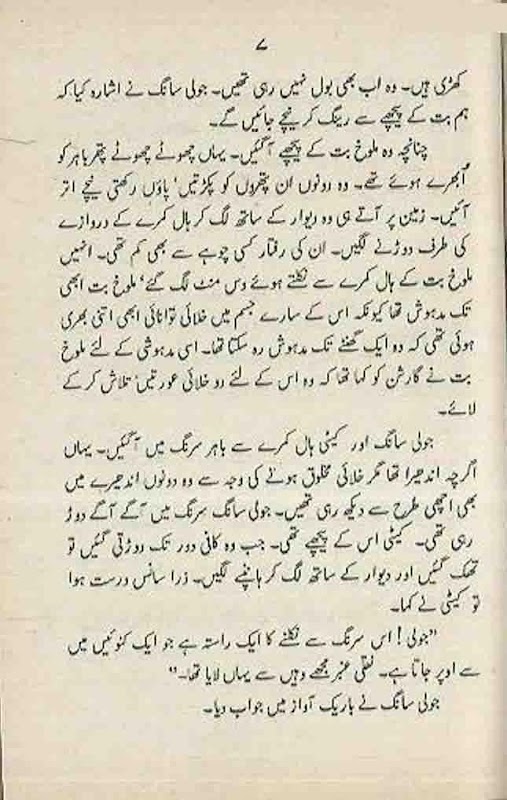 ۷
کھڑی ہیں۔ وہ اب بھی بول نہیں رہی تھیں۔ جولی سانگ نے اشارہ کیا کہ
ہم بت کے پیچھے سے رینگ کر نیچے جائیں گے۔
چنانچہ وہ ملوخ بت کے پیچھے آگئیں۔ یہاں چھوٹے چھوٹے پتھر باہر کو
اُبھرے ہوئے تھے۔ وہ دونوں ان پتھروں کو پکڑتیں' پاؤں رکھتی نیچے اتر
آئیں۔ زمین پر آتے ہی وہ دیوار کے ساتھ لگ کر ہال کمرے کے دروازے
کی طرف دوڑنے لگیں۔ ان کی رفتار کسی چوہے سے بھی کم تھی۔ انہیں
ملوخ بت کے ہال کمرے سے نکلتے ہوئے دس منٹ لگ گئے' ملوخ بت ابھی
تک مدہوش تھا کیونکہ اس کے سارے جسم میں خلائی توانائی ابھی اتنی بھری
ہوئی تھی کہ وہ ایک گھنٹے تک مدہوش رہ سکتا تھا۔ اسی مدہوشی کے لئے ملوخ
بت نے گارشن کو کہا تھا کہ وہ اس کے لئے دو خلائی عورتیں' تلاش کر کے
لائے۔
جولی سانگ اور کیٹی ہال کمرے سے باہر سرنگ میں آگئیں۔ یہاں
اگرچہ اندھیرا تھا مگر خلائی مخلوق ہونے کی وجہ سے وہ دونوں اندھیرے میں
بھی اچھی طرح سے دیکھ رہی تھیں۔ جولی سانگ سرنگ میں آگے آگے دوڑ
رہی تھی۔ کیٹی اس کے پیچھے تھی۔ جب وہ کافی دور تک دوڑتی گئیں تو
تھک گئیں اور دیوار کے ساتھ لگ کر ہانپنے لگیں۔ ذرا سانس درست ہوا
تو کیٹی نے کہا۔
"جولی! اس سرنگ سے نکلنے کا ایک راستہ ہے جو ایک کنوئیں میں
سے اوپر جاتا ہے۔ نقلی عنبر مجھے وہیں سے یہاں لایا تھا۔"
جولی سانگ نے باریک آواز میں جواب دیا۔